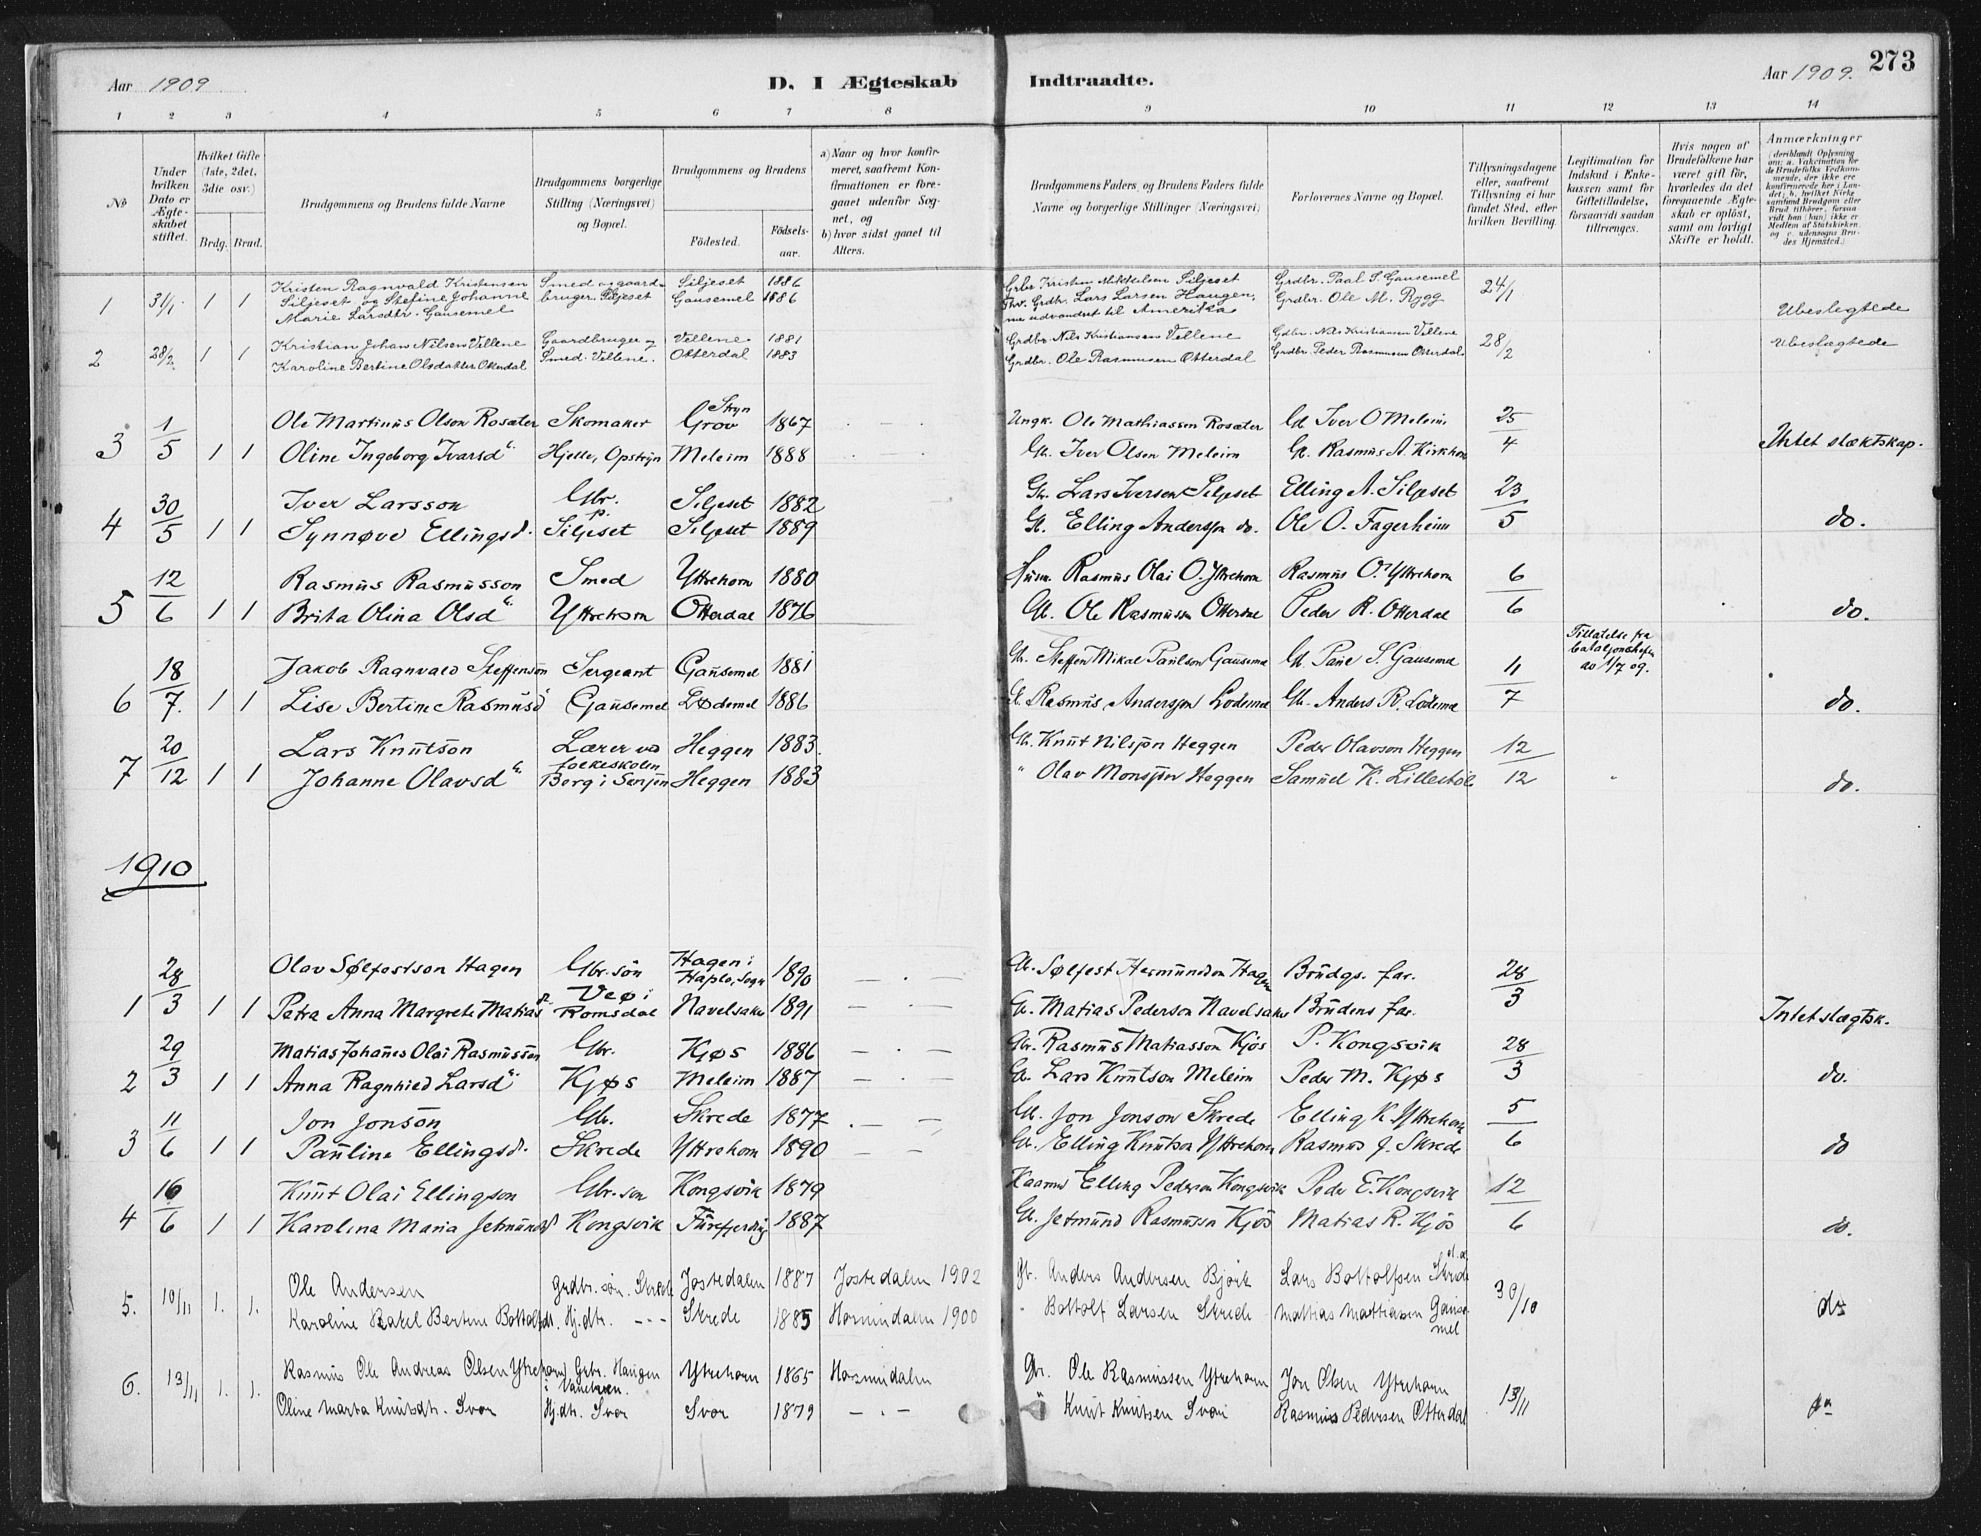 Aar 1909
D. I Ægteskab
Indtraadte.
Aar 1909.
273
1 2 3 4 5 6 7 8 9 10 11 12 13 14
No
Under hvilken Dato er Ægteskabet stiftet.
Hvilket Gifte (1ste, 2det, 3die osv.)
Brdg. Brud.
Brudgommens og Brudens fulde Navne
Brudgommens borgerlige Stilling (Næringsvei) og Bopæl.
Brudgommens og Brudens
Fødested.
Fødselsaar.
a) Naar og hvor konfirmeret, saafremt Konfirmationen er foregaaet udenfor Sognet, og
b) hvor sidst gaaet til Alters.
Brudgommens Faders og Brudens Faders fulde Navne og borgerlige Stillinger (Næringsvei)
Forlovernes Navne og Bopæl.
Tillysningsdagene eller, saafremt Tillysning ei har fundet Sted, efter hvilken Bevilling.
Legitimation for Indskud i Enkekassen samt for Giftetilladelse, forsaavidt saadan tiltrænges.
Hvis nogen af Brudefolkene har været gift før, hvorledes da det foregaaende Ægteskab er opløst, samt om lovligt Skifte er holdt.
Anmærkninger
(deriblandt Oplysning om: a. Vakcination for de Brudefolks Vedkommende, der ikke ere konfirmerede her i Landet; b. hvilket Kirkesamfund Brudgom eller Brud tilhører, forsaavidt han (hun) ikke er Medlem af Statskirken, og c. udensogns Brudes Hjemsted.)
1 31/1 1 1 Kristen Ragnvald Kristensen Smed og gaard- Siljeset 1886 Kristen Mikkelsen Siljeset Grdbr. Paal S. Gausemel 24/1
Siljeset og Stefine Johanne bruger. Siljeset Gausemel 1886 Lars Larsen Haugen, Grdbr. Ole M. Rygg
Marie Larsdtr. Gausemel udvandret til Amerika Ubeslegtede
2 28/2 1 1 Kristian Johan Nilsen Vellene Gaardbruger og Vellene 1881 Grdbr. Nils Kristiansen Vellene Gdbr. Nils Kristiansen Vellene 28/2 Ubeslægtede
Karoline Bertine Olsdatter Otterdal Smed. Vellene. Otterdal 1883 Grdbr. Ole Rasmusen Otterdal Grdbr. Peder Rasmusen Otterdal
3 1/5 1 1 Ole Martinus Olson Rosæter Skomaker Stryn Grov 1867 Ungk. Ole Mathiassen Rosæter Iver O Meleim 25/4
Oline Ingeborg Ivarsd. Hjelle, Opstryn Meleim 1888 Iver Olsen Meleim Rasmus A. Kirkhorn Intet slæktskap.
4 30/5 1 1 Iver Larsson Gbr. Siljeset 1882 Lars Iversen Siljeset Elling A. Siljeset 23/5
Synnøve Ellingsd. Siljeset Siljeset 1889 Elling Andersson do. Ole O. Fagerheim do.
5 12/6 1 1 Rasmus Rasmusson Smed Yttrehorn 1880 Rasmus Olai O. Ytrehorn Rasmus O. Yttrehorn 6/6
Brita Olina Olsd. Yttrehorn Otterdal 1876 Ole Rasmusson Otterdal Peder R. Otterdal do.
6 18/7. 1 1 Jakob Ragnvald Steffenson Sergeant Gausemel 1881 Steffen Mikal Paulson Gausemel S. Gausemel 11/7 Tillatelse fra bataljonschefen av 1/7 09.
Lise Bertine Rasmusd. Gausemel Lødemel 1886 Rasmus Andersson Lødemel Anders R. Lødemel do.
7 20/12 1 1 Lars Knutson Lærer ved Heggen 1883. Knut Nilsson Heggen Peder Olavson Heggen 12/12
Johanne Olavsd. folkeskolen Berg i Senjen Heggen 1883 " Olav Monsson Heggen Samuel K. Lillestøl do.
1910
1 28/3 1 1 Olav Sølfestson Hagen Gbr. søn Hagen i Haplo, Sogn 1890 Sølfest Hermundson Hagen Brudgs. far. 28/3
Petra Anna Margrete Matiasd. Veø i Romsdal Navelsaker 1891 Matias Pederson Navelsaker Brudens far. Intet slægtsk.
2 29/3 1 1 Matias Johanes Olai Rasmusson Gbr. Kjøs 1886 Gbr. Rasmus Matiasson Kjøs P. Kongsvik 28/3
Anna Ragnhild Larsd. Kjøs Meleim 1887 Lars Knutson Meleim Peder M. Kjøs do.
3 11/6 1 1 Jon Jonson Gbr. Skrede 1877 Jon Jonson Skrede Elling K. Yttrehorn 5/6
Pauline Ellingsd. Skrede Yttrehorn 1890 Elling Knutson Yttrehorn Rasmus J. Skrede do
4 16/6 1 1 Knut Olai Ellingson Gbr. son Kongsvik 1879 Kaarm. Elling Pederson Kongsvik Peder E. Kongsvik 12/6
Karolina Maria Jetmundsd Kongsvik 1887 Jetmund Rasmusson Kjøs Matias R. Kjøs do.
5. 10/11 1. 1. Ole Andersen Grdbr. søn. Skrede Jostedalen 1887 Jostedalen 1902 Gb. Anders Andersen Bjørk Lars Bottolfsen Skrede 30/10
Karoline Rakel Bertine Bottolfsdt. Hj.dtr. --- Skrede 1885 Hornindalen 1900 " Bottolf Larsen Skrede Mattias Mattiasen Gausemel do
6. 13/11 1. 1. Rasmus Ole Andreas Olsen Ytrehorn Grbr. Haugen i Vanelven. Ytrehorn 1865 Hornindalen Gbr. Ole Rasmussen Ytrehorn Jon Olsen Ytrehorn 13/11
Oline Marta Knutsdt. Svor Hj.dtr. Svor Svor 1879 " Knut Knutsen Svor Rasmus Pedersen Otterdal do